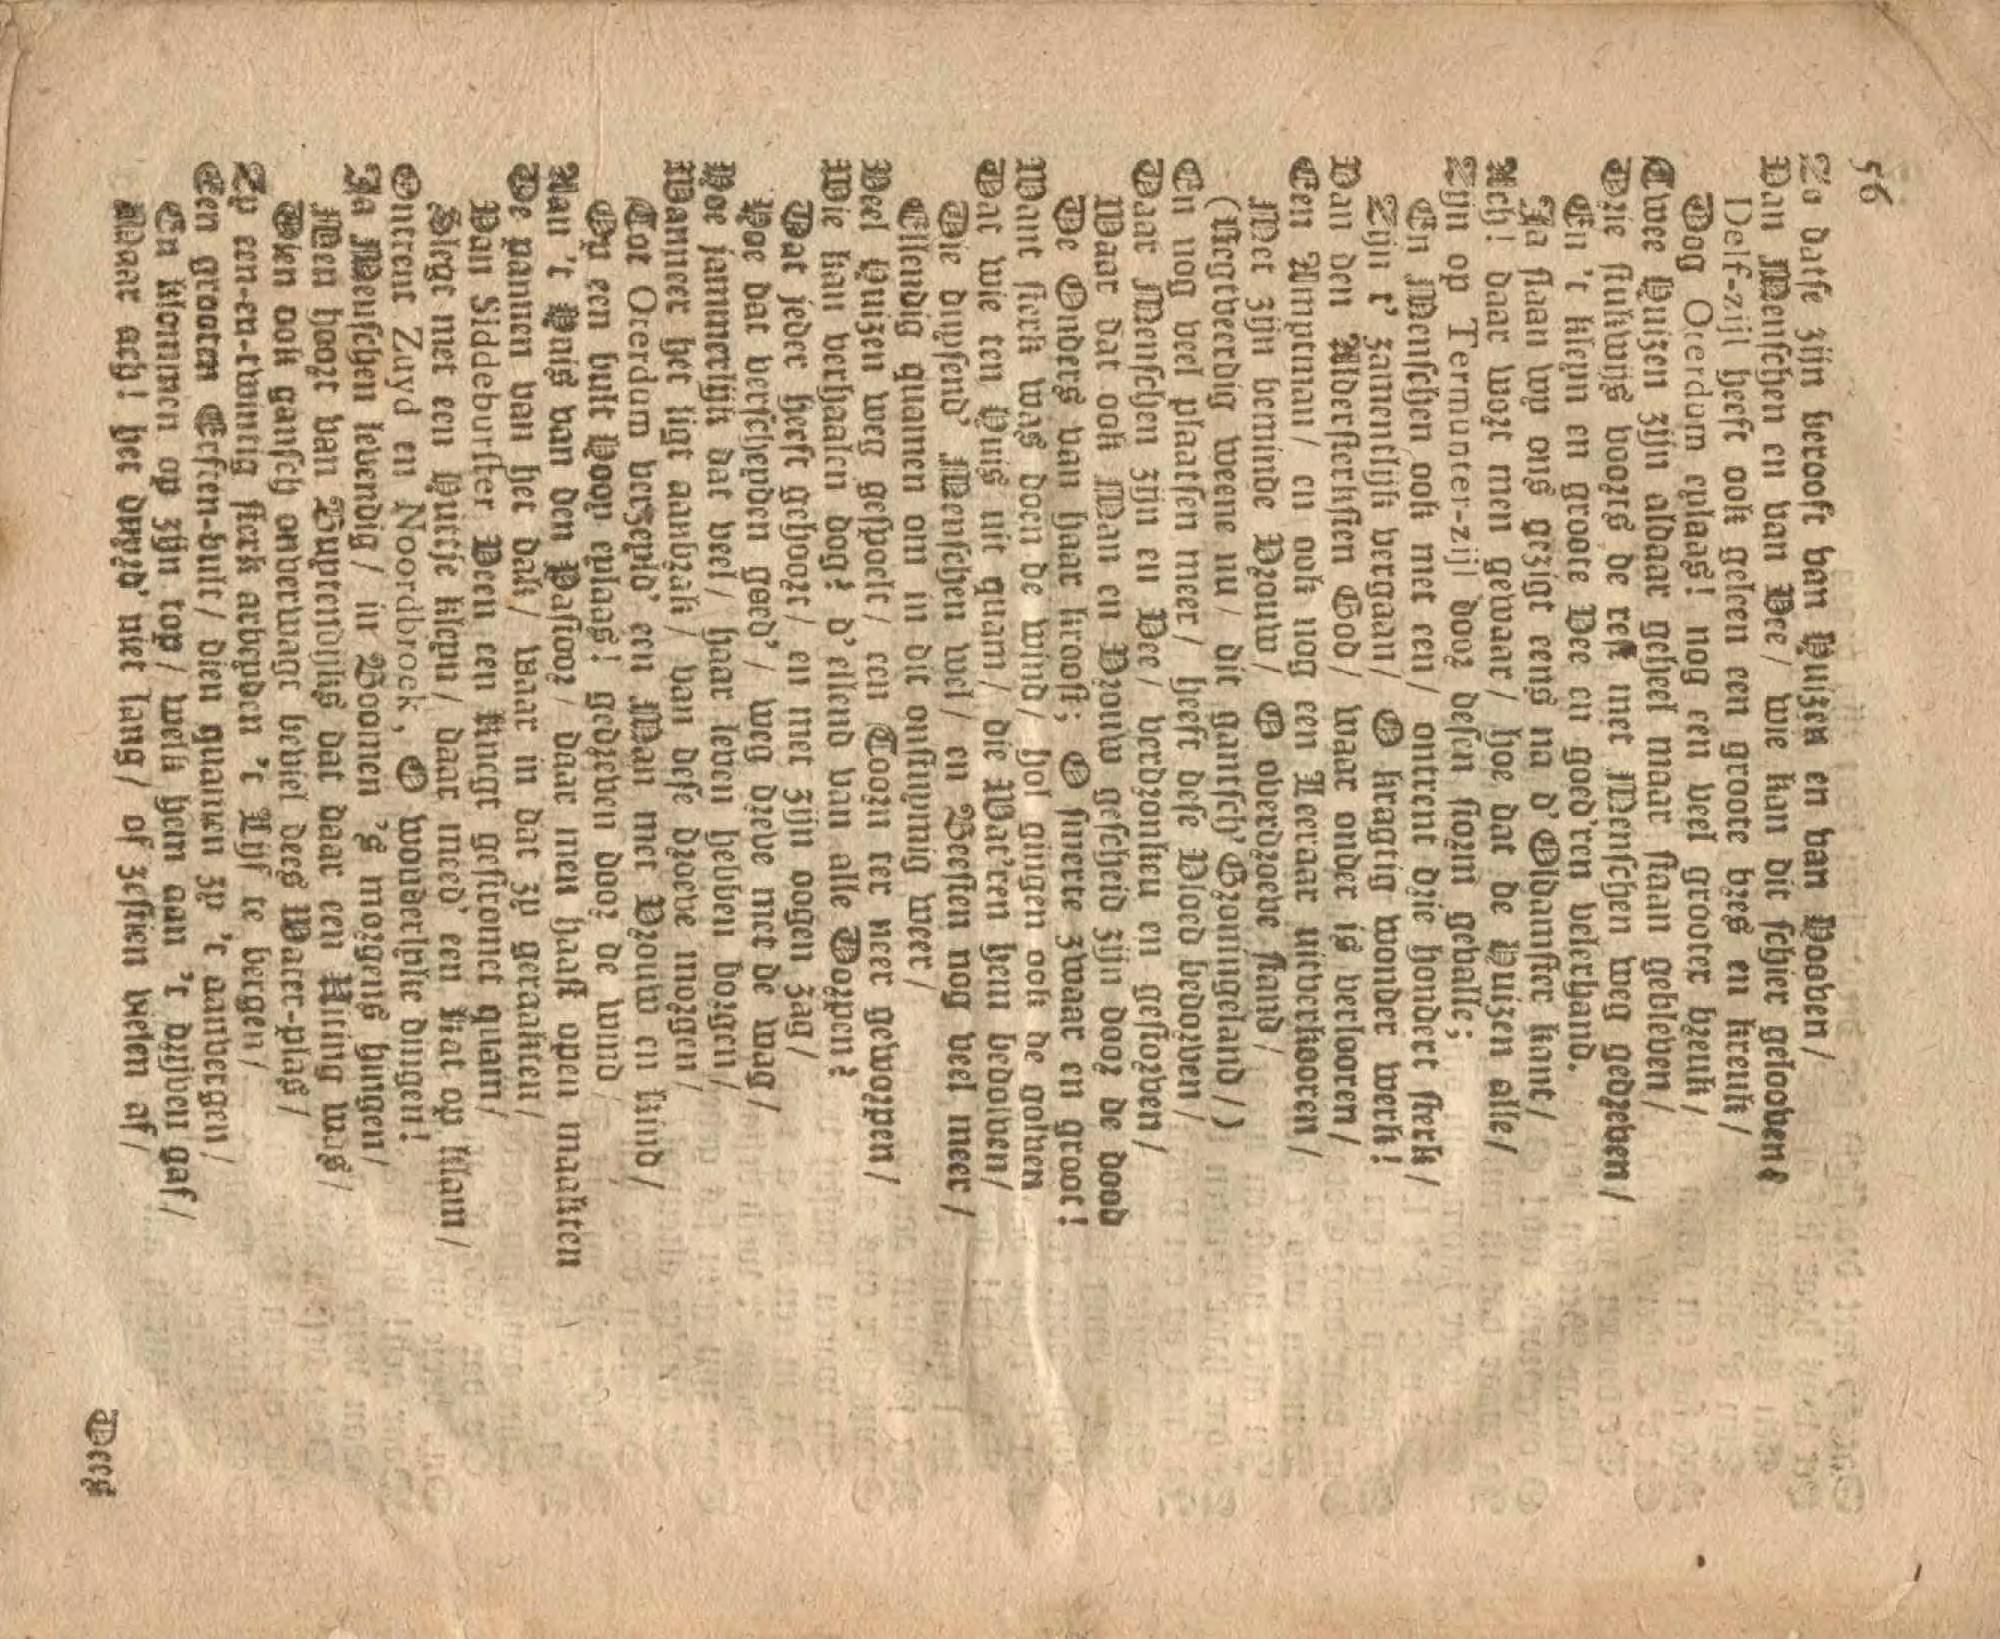 56
Zo datse zijn berooft van Huizen en van Hooven/
Van Menschen en van Vee/ wie kan dit schier gelooven?
Delf-zijl heeft ook geleen een groote bres en kreuk/
Dog Oterdum eplaas! nog een veel grooter breuk/
Twee Huizen zijn aldaar geheel maar staan gebleven/
Drie stukwijs voorts de rest met Menschen weg gedreven/
En 't kleyn en groote Vee en goed'ren velerhand.
Ja slaan wy ons gezigt eens na d'Oldamster kant/
Ach! daar wort men gewaar/ hoe dat de Huizen alle/
Zijn op Termunter-zijl door desen storm gevalle;
En Menschen ook met een/ ontrent drie hondert sterk/
Zijn t' zamentlijk vergaan/ O kragtig wonder werk!
Van den Aldersterksten God/ waar onder is verlooren/
Een Amptman/ en ook nog een Leeraar uitverkooren/
Met zijn beminde Vrouw/ O overdroeve stand/
(Regtveerdig weene nu/ dit gantsch' Groningeland/)
En nog veel plaatsen meer/ heeft dese Vloed bedorven/
Daar Menschen zijn en Vee/ verdronken en gestorven/
Waar dat ook Man en Vrouw gescheid zijn door de dood
De Onders van haar kroost; O smerte zwaar en groot!
Want sterk was doen de wind/ hol gingen ook de golven
Dat wie ten Huis uit quam/ die Wat'ren hem bedolven/
Die duysend' Menschen wel/ en Beesten nog veel meer/
Ellendig quamen om in dit onstuymig weer/
Veel Huizen weg gespoelt/ een Toorn ter neer geworpen/
Wie kan verhaalen dog? d'ellend van alle Dorpen?
Dat jeder heeft gehoort/ en met zijn oogen zag/
Hoe dat verscheyden goed'/ weg dreve met de wag/
Hoe jammerlijk dat veel/ haar leven hebben borgen/
Wanneer het ligt aanbrak/ van dese droeve morgen/
Tot Oterdum verzeyld' een Man met Vrouw en kind/
Op een bult Hooy eplaas! gedreven door de wind
Aan 't Huis van den Pastoor/ daar men haast open maakten
De pannen van het dak/ waar in dat zy geraakten/
Van Siddeburster Veen een Knegt gestromet quam/
Slegt met een Huttje kleyn/ daar meed' een Kat op klam/
Ontrent Zuyd en Noordbroek, O wonderlyke dingen!
Ja Menschen levendig/ in Boomen 's morgens hingen/
Men hoort van Buytendijks dat daar een Kiting was/
Dien ook gansch onverwagt beviel dees Water-plas/
Zy een-en-twintig sterk arbeyden 't Lijf te bergen/
Een grooten Erften-bult/ dien quamen zy 't aanvergen/
En klommen op zijn top/ welk hem aan 't drijven gaf/
Maar ach! het duurd' niet lang/ of zestien vielen af/
Dees